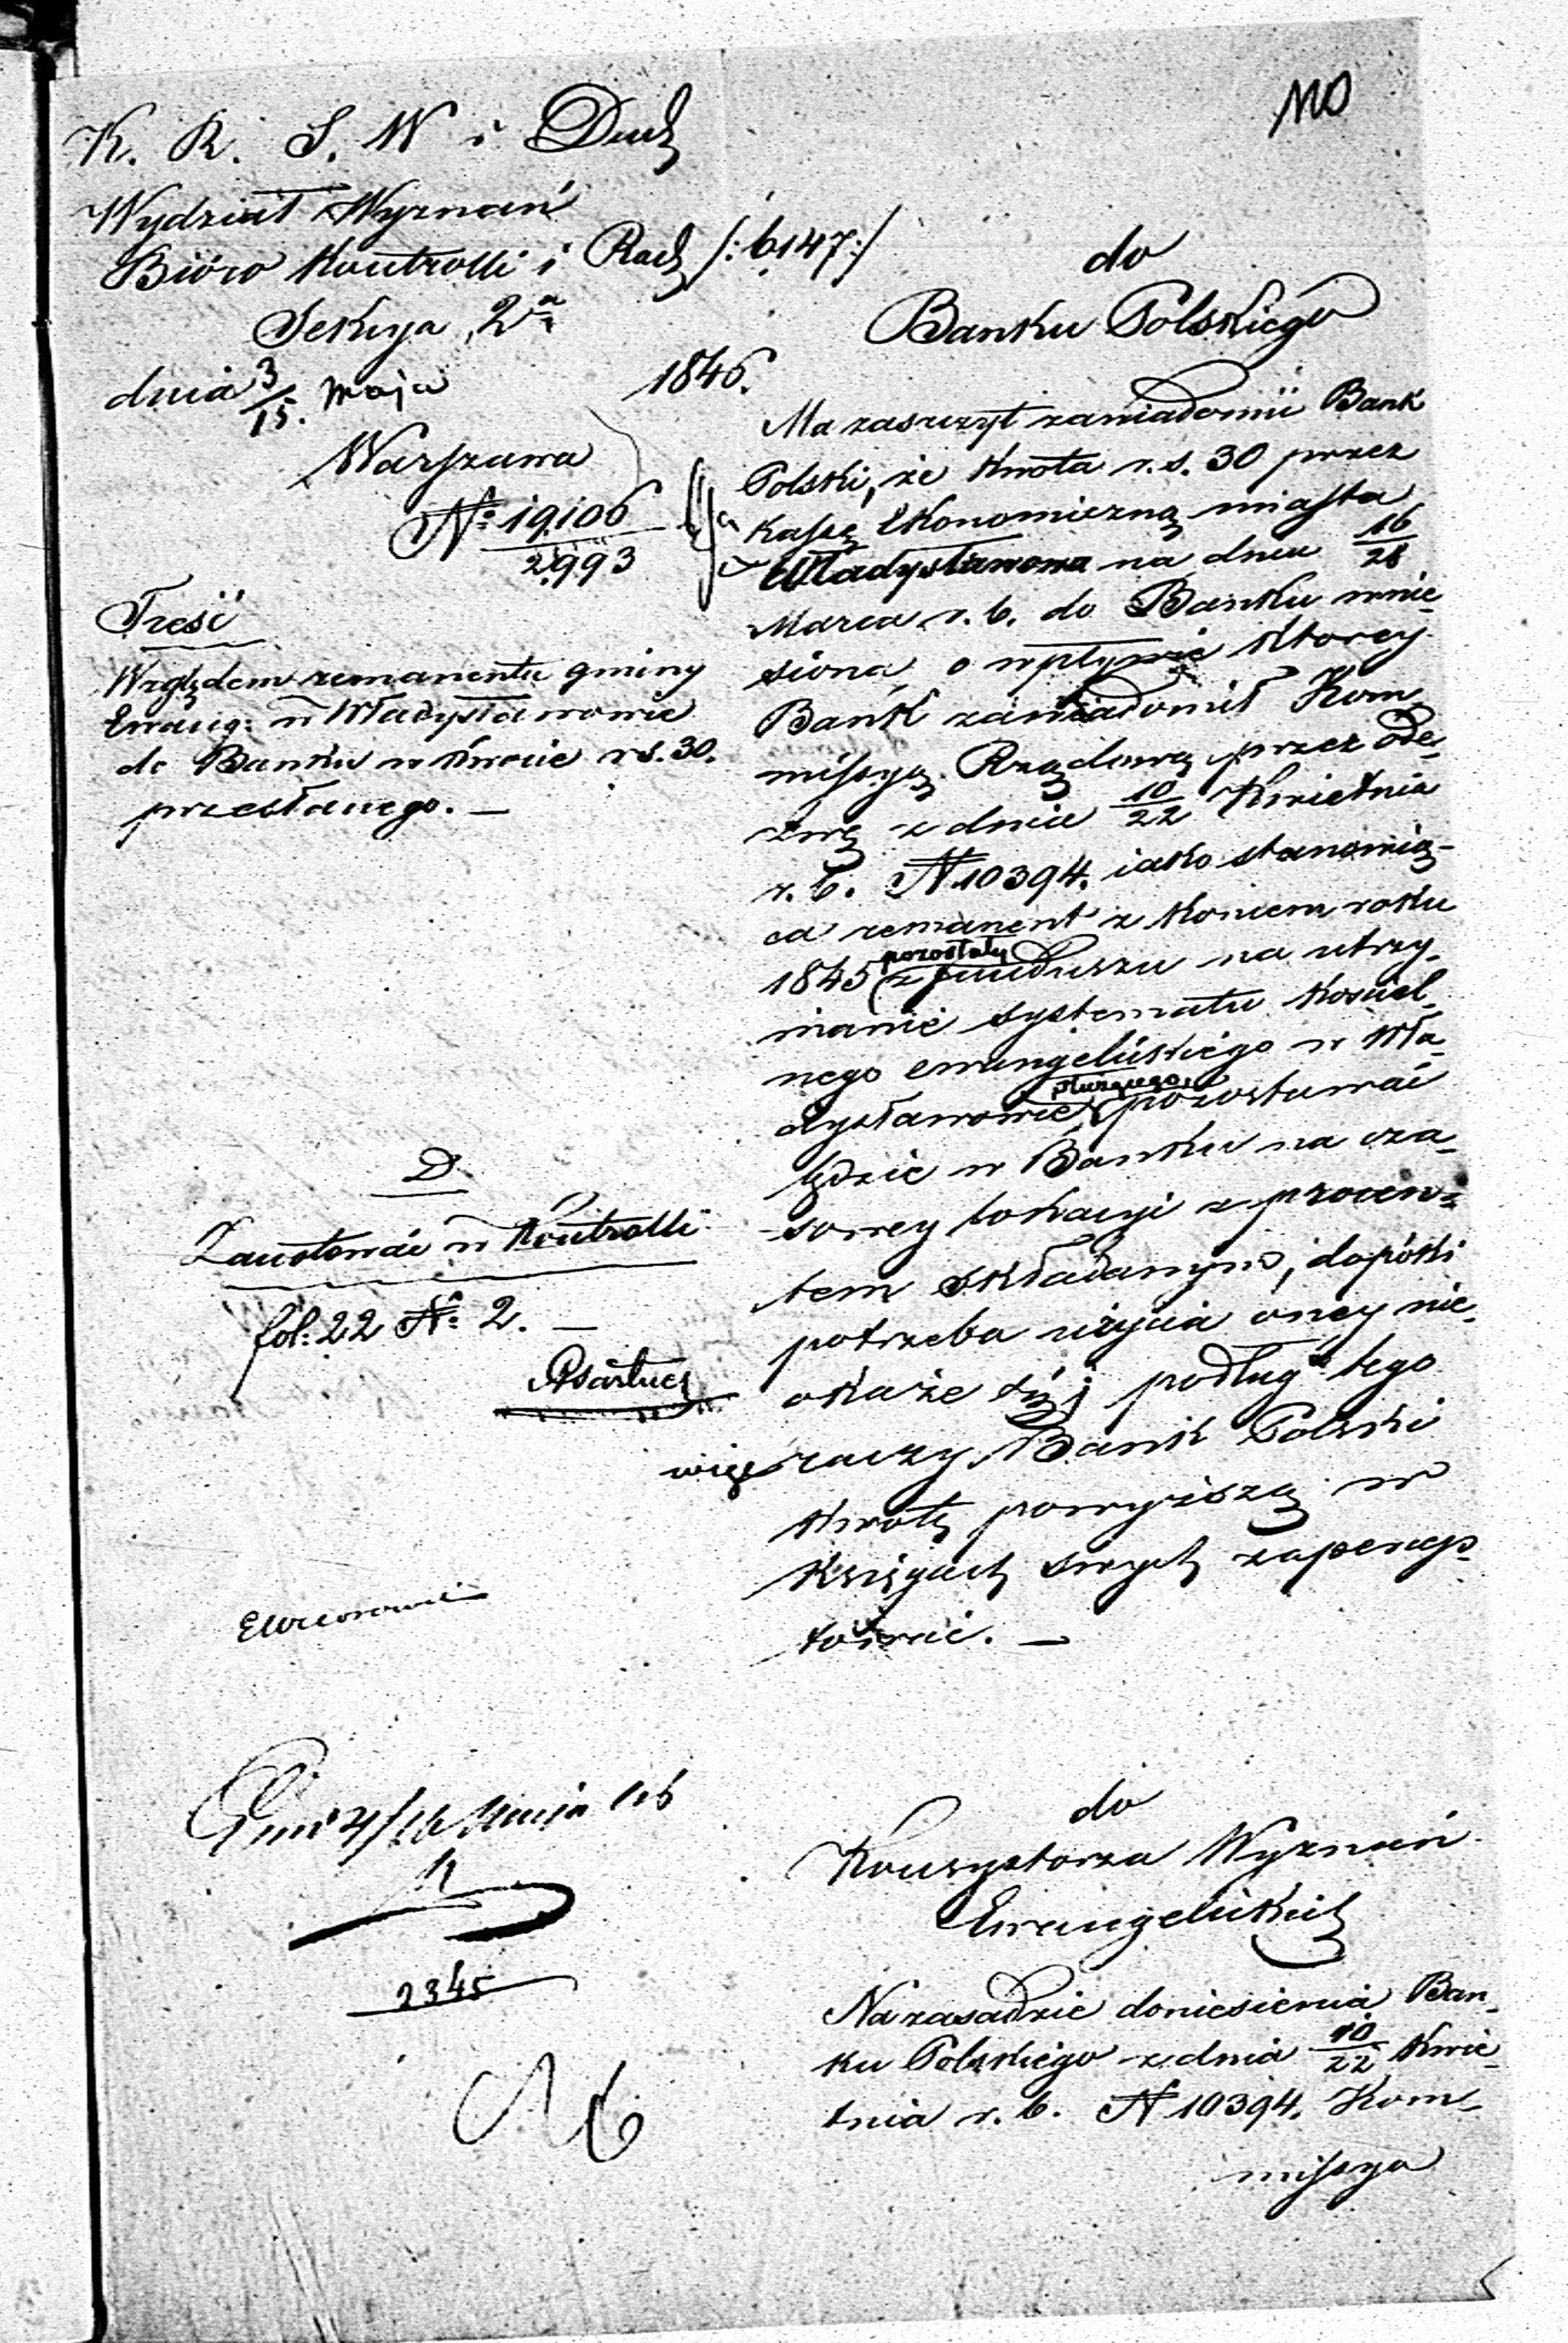 110
K. R. S. W i Duch
Wydział Wyznań
Bióro Kontrolli i Rach /:6147:/
Sekcya 2ª
dnia 3/15. Maja 1846.
Warszawa
Nº 19106
2993
Treść
Względem remanentu gminy
Ewang: w Władysławowie
do Banku w kwocie rs. 30.
przesłanego. —
D.
Zanotować w Kontrolli
fol: 22 Nº 2. —
2345
do
Banku Polskiego
Ma zaszczyt zawiadomić Bank
Polski, że kwota r. s. 30 przez
Kassę Ekonomiczną miasta
Władysławowa na dniu 16/28
Marca r. b. do Banku wnie-
siona, o wpływie którey
Bank zawiadomił Kom
missyą Rządową przez ode-
zwę z dnia 10/22 Kwietnia
r. b. N 10394. iako stanowią-
ca remanent z końcem roku
1845 pozostały z funduszu na utrzy-
manie systematu kościel-
nego ewangelickiego w Wła-
dysławowie służącego, pozostawać
będzie w Banku na cza-
sowey lokacyi z procen-
tem składanym, dopóki
potrzeba użycia oney nie
okaże się; podług tego
więc raczy Bank Polski
kwotę powyższą w
Księgach swych zapercep-
tować. —
do
Konsystorza Wyznań
Ewangelickich
Na zasadzie doniesienia Ban-
ku Polskiego z dnia 10/22 Kwie-
tnia r. b. N 10394. Kom-
missya